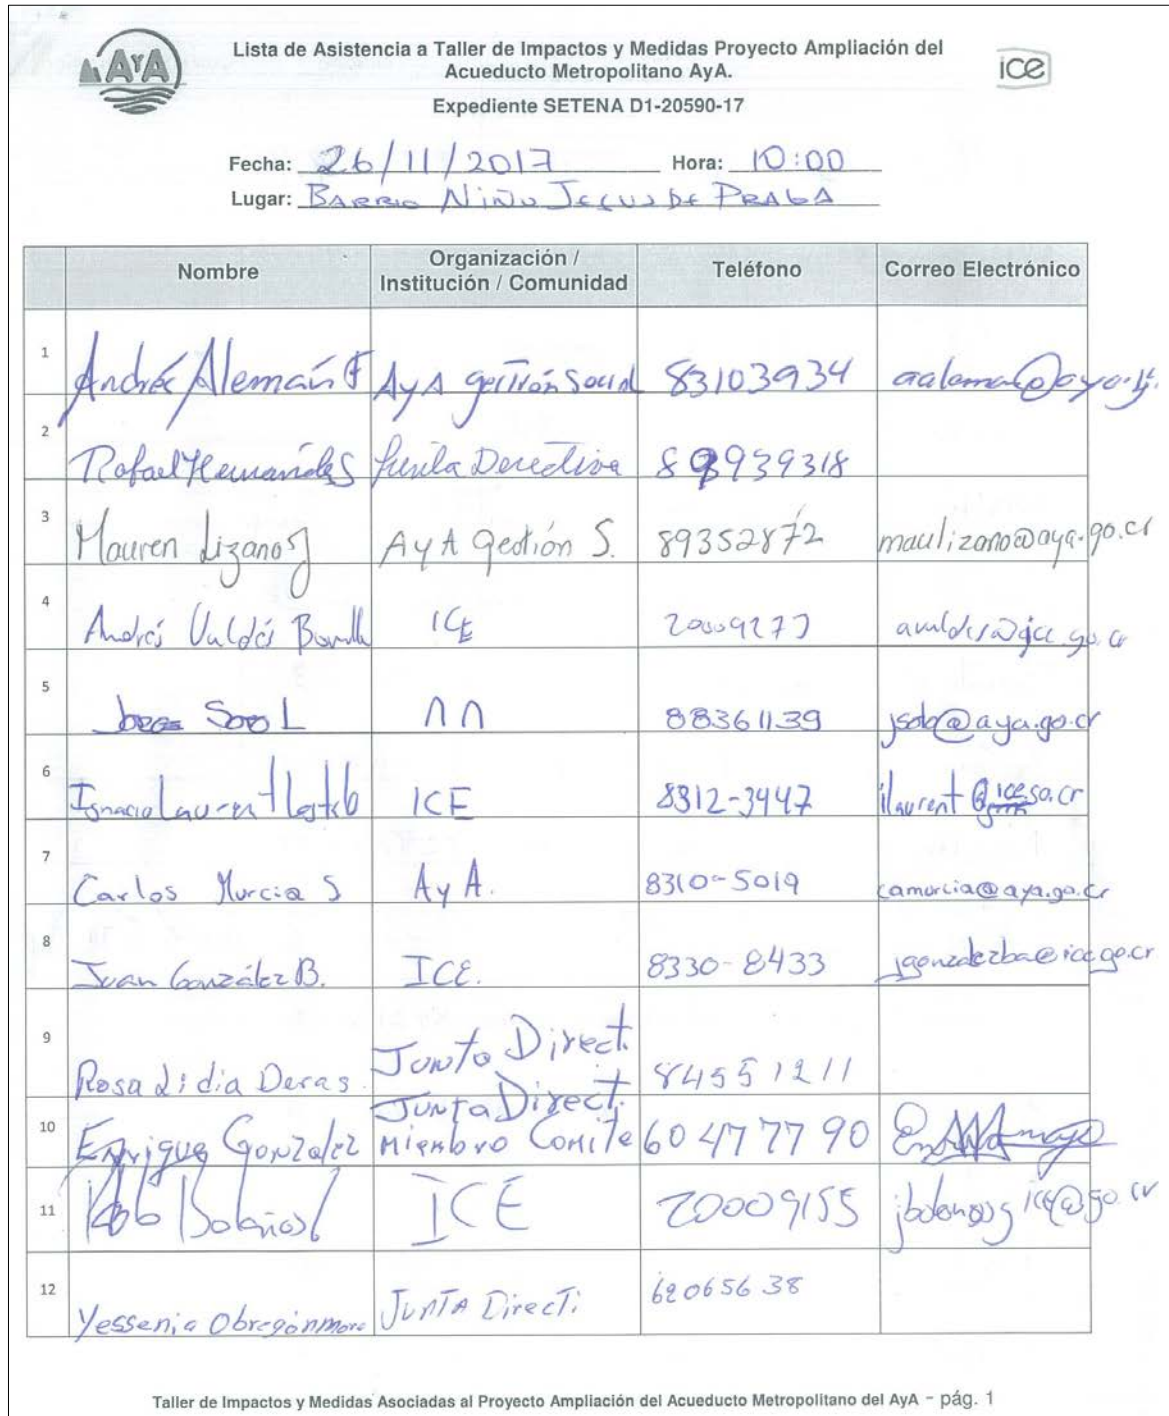 AyA
ice
Lista de Asistencia a Taller de Impactos y Medidas Proyecto Ampliación del
Acueducto Metropolitano AyA.
Expediente SETENA D1-20590-17
Fecha: 26/11/2017 Hora: 10:00
Lugar: BARRIO NIÑO JESUS DE PRAGA
Nombre Organización / Institución / Comunidad Teléfono Correo Electrónico
1 Andrés Alemán AyA gestión Social 83103934
2 Rafael Hernández Junta Derectiva 89939318
3 Mauren Lizano AyA Gestión S. 89352872 maulizano@aya.go.cr
4 Andrés Valdés Bonilla ICE
5 Soto L 88361139 jsoto@aya.go.cr
6 Ignacio Laurent ICE 8312-3447
7 Carlos Murcia S AyA. 8310-5019 camurcia@aya.go.cr
8 Juan González B. ICE. 8330-8433 jgonzalezba@ice.go.cr
9 Rosa Lidia Deras Junta Direct. 84551211
10 Enrique Gonzalez Junta Direct. Miembro Comite 60477790
11 Bolaños ICE 20009155
12 Yessenia Obregón mora JUNTA Directi 62065638
Taller de Impactos y Medidas Asociadas al Proyecto Ampliación del Acueducto Metropolitano del AyA - pág. 1